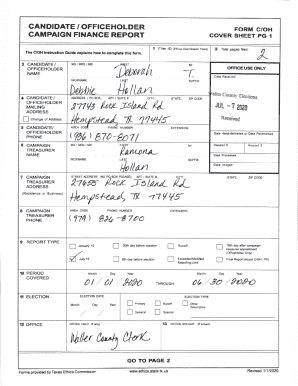 CANDIDATE / OFFICEHOLDER
CAMPAIGN FINANCE REPORT
FORM C/OH
COVER SHEET PG 1
The C/OH Instruction Guide explains how to complete this form.
1 Filer ID (Ethics Commission Filers)
2 Total pages filed:
2
3 CANDIDATE / OFFICEHOLDER NAME
MS / MRS / MR FIRST MI
Deborah T.
NICKNAME LAST SUFFIX
Debbie Hollan
OFFICE USE ONLY
Date Received
Waller County Elections
JUL - 7 2020
Received
4 CANDIDATE / OFFICEHOLDER MAILING ADDRESS
Change of Address
ADDRESS / PO BOX; APT / SUITE #; CITY; STATE; ZIP CODE
Rock Island Rd
Hempstead, TX 77445
5 CANDIDATE/ OFFICEHOLDER PHONE
AREA CODE PHONE NUMBER EXTENSION
(936) 870-8071
Date Hand-delivered or Date Postmarked
6 CAMPAIGN TREASURER NAME
MS / MRS / MR FIRST MI
Ramona
NICKNAME LAST SUFFIX
Hollan
Receipt # Amount $
Date Processed
Date Imaged
7 CAMPAIGN TREASURER ADDRESS
(Residence or Business)
STREET ADDRESS (NO PO BOX PLEASE); APT / SUITE #; CITY; STATE; ZIP CODE
Rock Island Rd
Hempstead, TX 77445
8 CAMPAIGN TREASURER PHONE
AREA CODE PHONE NUMBER EXTENSION
(979) 826-8700
9 REPORT TYPE
January 15
30th day before election
Runoff
15th day after campaign treasurer appointment (Officeholder Only)
July 15
8th day before election
Exceeded Modified Reporting Limit
Final Report (Attach C/OH - FR)
10 PERIOD COVERED
Month Day Year Month Day Year
01 / 01 / 2020 THROUGH 06 / 30 / 2020
11 ELECTION
ELECTION DATE
Month Day Year
ELECTION TYPE
Primary
Runoff
Other Description
General
Special
12 OFFICE
OFFICE HELD (if any)
Waller County Clerk
13 OFFICE SOUGHT (if known)
GO TO PAGE 2
Forms provided by Texas Ethics Commission
www.ethics.state.tx.us
Revised 1/1/2020